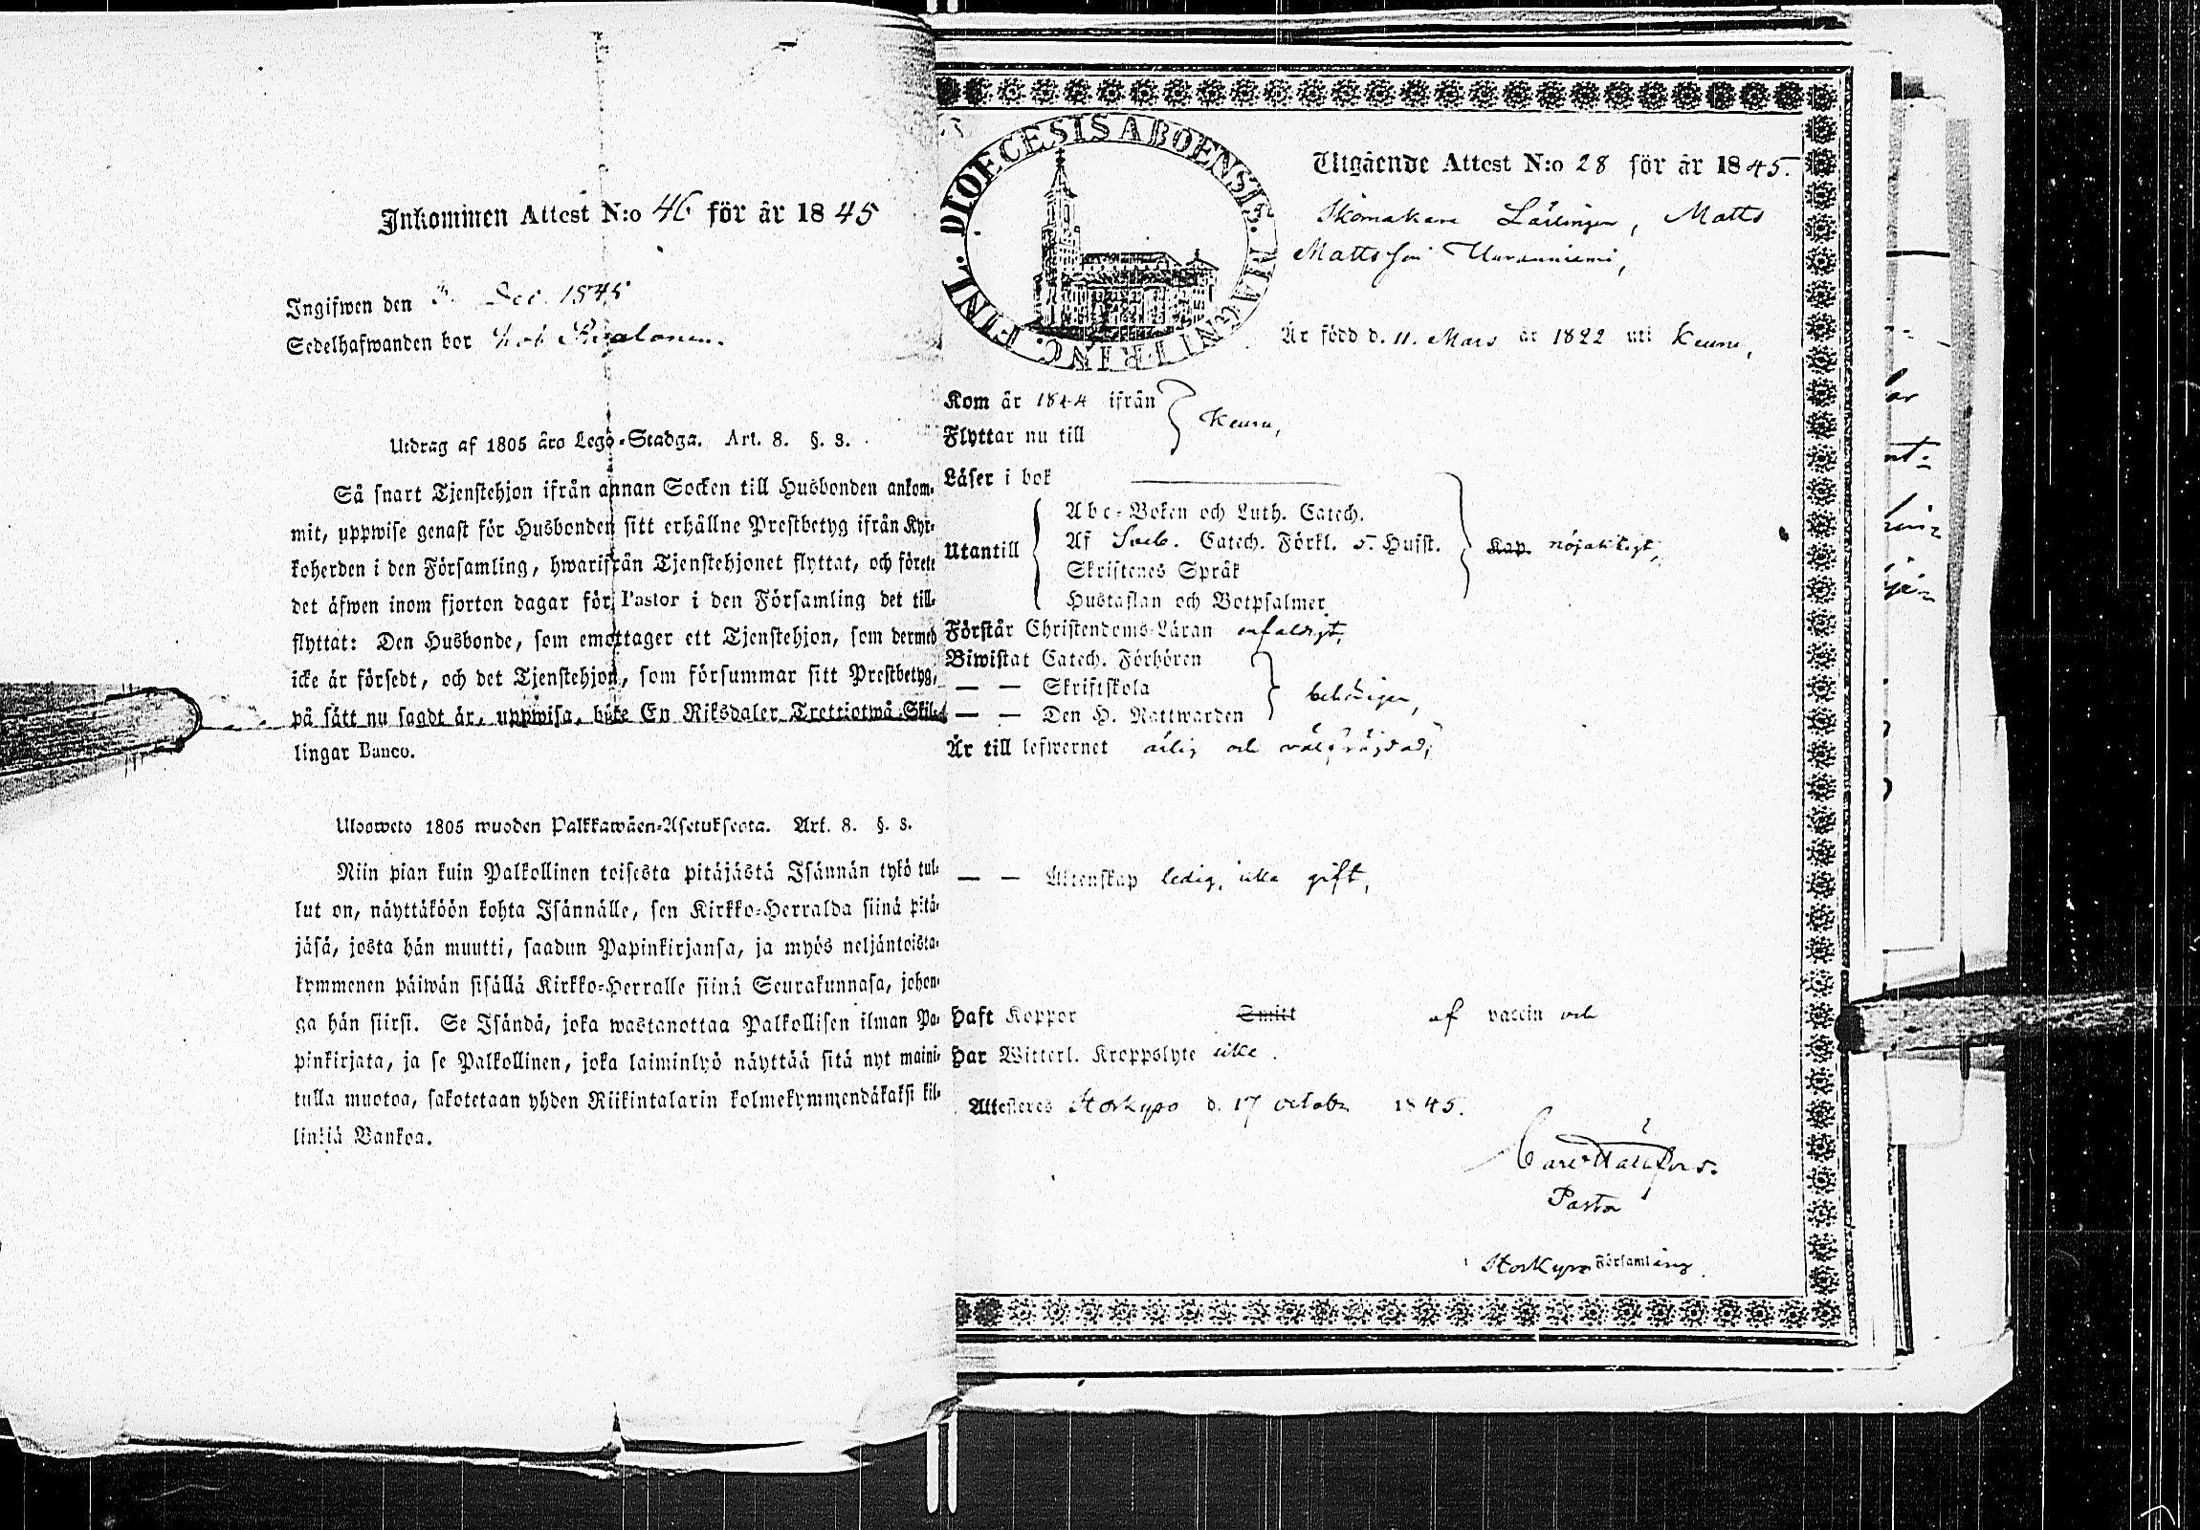 Inkommen Attest N:o 46 för år 1845
Ingifwen den Dec. 1845
Sedelhafwanden bor
Utdrag af 1805 års Lego-Stadga. Art. 8. §. 3.
Så snart Tjenstehjon ifrån annan Socken till Husbonden ankom-
mit, uppwise genast för Husbonden sitt erhållne Prestbetyg ifrån Kyr-
koherden i den Församling, hwarifrån Tjenstehjonet flyttat, och förete
det äfwen inom fjorton dagar för Pastor i den Församling det till-
flyttat: Den Husbonde, som emottager ett Tjenstehjon, som dermed
icke är försedt, och det Tjenstehjon, som försummar sitt Prestbetyg,
på sätt nu sagdt är, uppwisa, böte En Riksdaler Trettiotwå Skil-
lingar Banco.
Ulosweto 1805 wuoden Palkkawäen-Asetuksesta. Art. 8. §. 3.
Niin pian kuin Palkollinen toisesta pitäjästä Isännän tykö tul-
lut on, näyttäköön kohta Isännälle, sen Kirkko-Herralda siinä pitä-
jäsä, josta hän muutti, saadun Papinkirjansa, ja myös neljäntoista-
kymmenen päiwän sisällä Kirkko-Herralle siinä Seurakunnasa, johon-
ga hän siirsi. Se Isändä, joka wastanottaa Palkollisen ilman Pa-
pinkirjata, ja se Palkollinen, joka laiminlyö näyttää sitä nyt maini-
tulla muotoa, sakotetaan yhden Riikintalarin kolmekymmendäkaksi kil-
linkiä Bankoa.
DIOECESIS ABOENSIS. MAGNI PRINC. FINL.
Utgående Attest N:o 28 för år 1845.
Skomakare Lärlingen, Matts
Mattsson
Är född d. 11. Mars år 1822 uti Keuru,
Kom år 1844 ifrån
Flyttar nu till
Keuru,
Läser i bok
Utantill
Abc-Boken och Luth. Catech.
Af Sveb. Catech. Förkl. s. Hust.
Skriftenes Språk
Hustaflan och Botpsalmer
Kap. nöjaktigt,
Förstår Christendoms-Läran enfaldigt,
Biwistat Catech. Förhören
— — Skriftskola
— — Den H. Nattwarden
behörigen,
Är till lefwernet ärlig och välfräjdad;
— — Äktenskap ledig, icke gift,
Haft Koppor Smitt af vaccin och
Har Witterl. Kroppslyte icke.
Attesteres Storkyro d. 17 October 1845.
Carl
Pastor
Storkyro Församling.